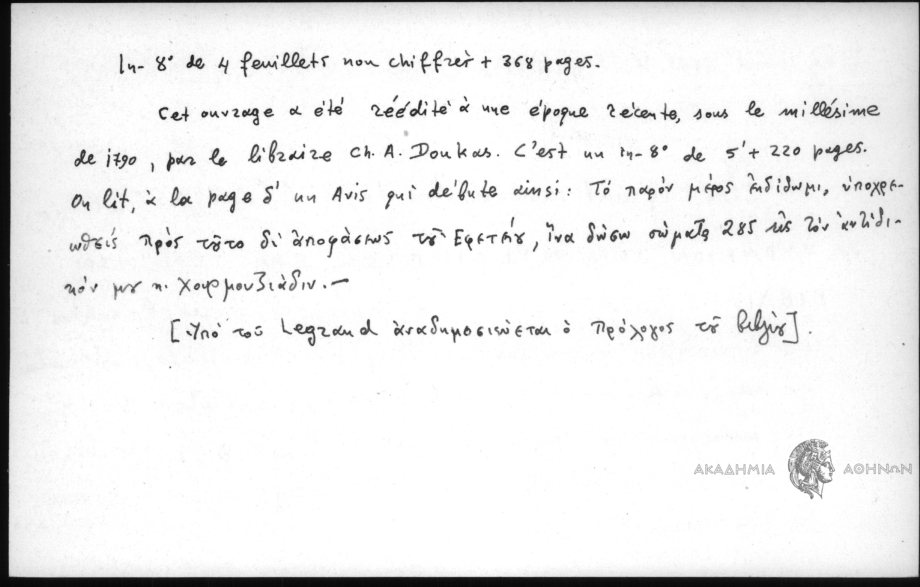 In-8° de 4 feuillets non chiffrés + 368 pages.
Cet ouvrage a été réédité à une époque récente, sous le millésime
de 1790, par le libraire Ch. A. Doukas. C'est un in-8° de 5'+ 220 pages.
On lit, à la page δ' un Avis qui débute ainsi: Τό παρόν μέρος ἐκδίδωμι, ὑποχρε-
ωθείς πρός τοῦτο δι' ἀποφάσεως τοῦ Ἐφετείου, ἵνα δώσω σώματα 285 εἰς τόν ἀντίδι-
κόν μου κ. Χουρμουζιάδην.—
[Ὑπό τοῦ Legrand ἀναδημοσιεύεται ὁ πρόλογος τοῦ βιβλίου].
ΑΚΑΔΗΜΙΑ ΑΘΗΝΩΝ